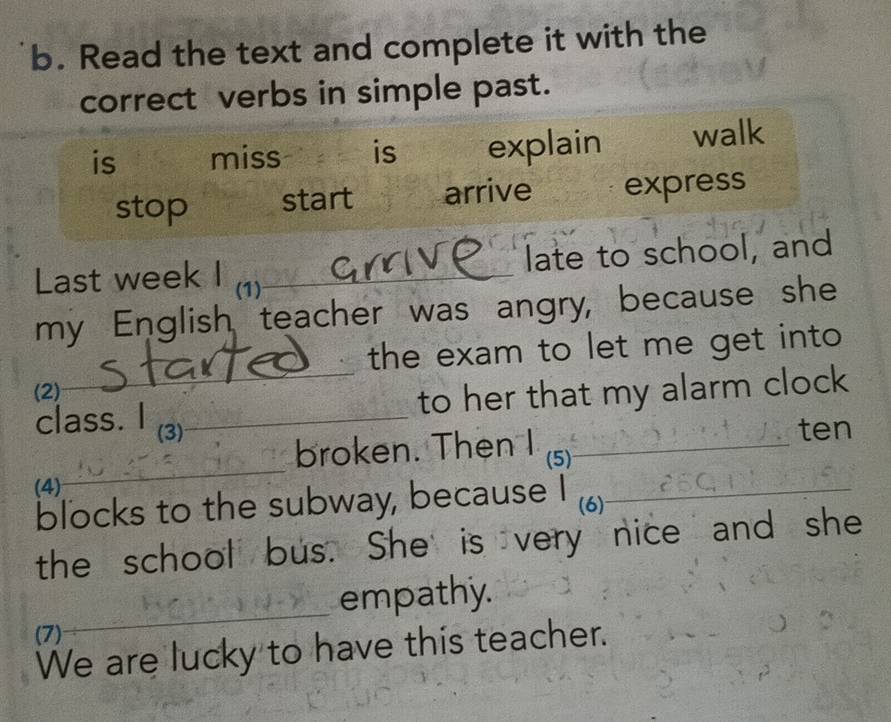 b. Read the text and complete it with the
correct verbs in simple past.
is miss is explain walk
stop start arrive express
Last week I (1) arrive late to school, and
my English teacher was angry, because she
(2) started the exam to let me get into
class. I (3) to her that my alarm clock
(4) broken. Then I (5) ten
blocks to the subway, because I (6)
the school bus. She is very nice and she
(7) empathy.
We are lucky to have this teacher.